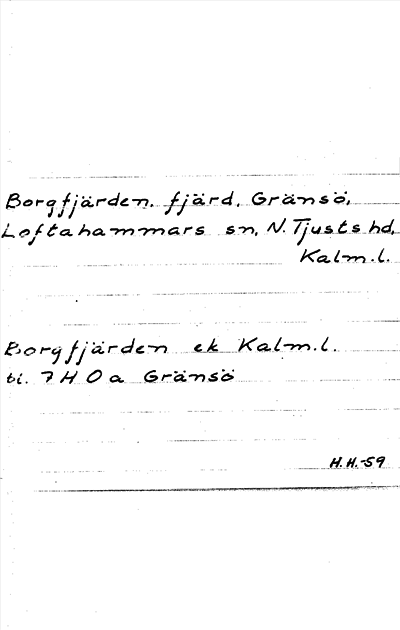 Borgfjärden, fjärd, Gränsö,
Loftahammars sn, N. Tjusts hd,
Kalm. l.
Borgfjärden ek Kalm. l.
bl. 7 H 0 a Gränsö
H. H. -59